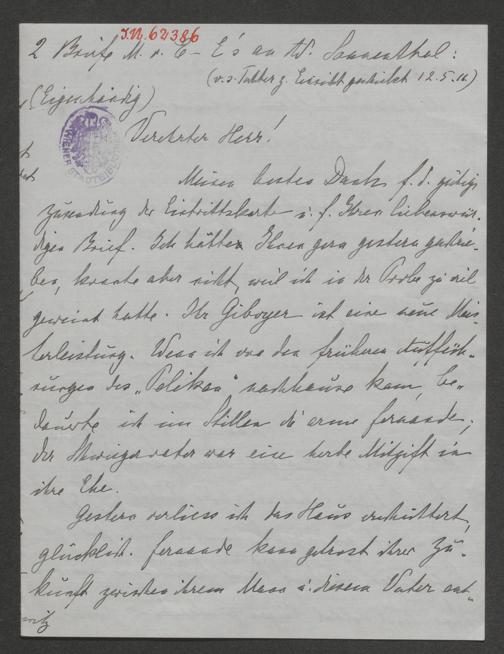 I.N. 62386
2 Briefe M. v. E-E's an A. Sonnenthal:
(v. s. Tochter z. Einsicht geschickt 12.5.16)
(Eigenhändig)
WIENER STADTBIBLIOTHEK
Verehrter Herr!
Meinen besten Dank f. d. gütige
Zusendung der Eintrittskarte u. f. Ihren liebenswür-
digen Brief. Ich hätte Ihnen gern gestern geschrie-
ben, konnte aber nicht, weil ich in der Probe zu viel
geweint hatte. Ihr Giboyer ist eine neue Meis-
terleistung. Wenn ich von den früheren Aufführ-
rungen des „Pelikan" nachhause kam, be-
dauerte ich im Stillen die arme Fernande,
der Schwiegervater war eine herbe Mitgift in
ihre Ehe.
Gestern verliess ich das Haus erschüttert,
glücklich. Fernande kann getrost ihrer Zu-
kunft zwischen ihrem Mann u. diesem Vater ent-